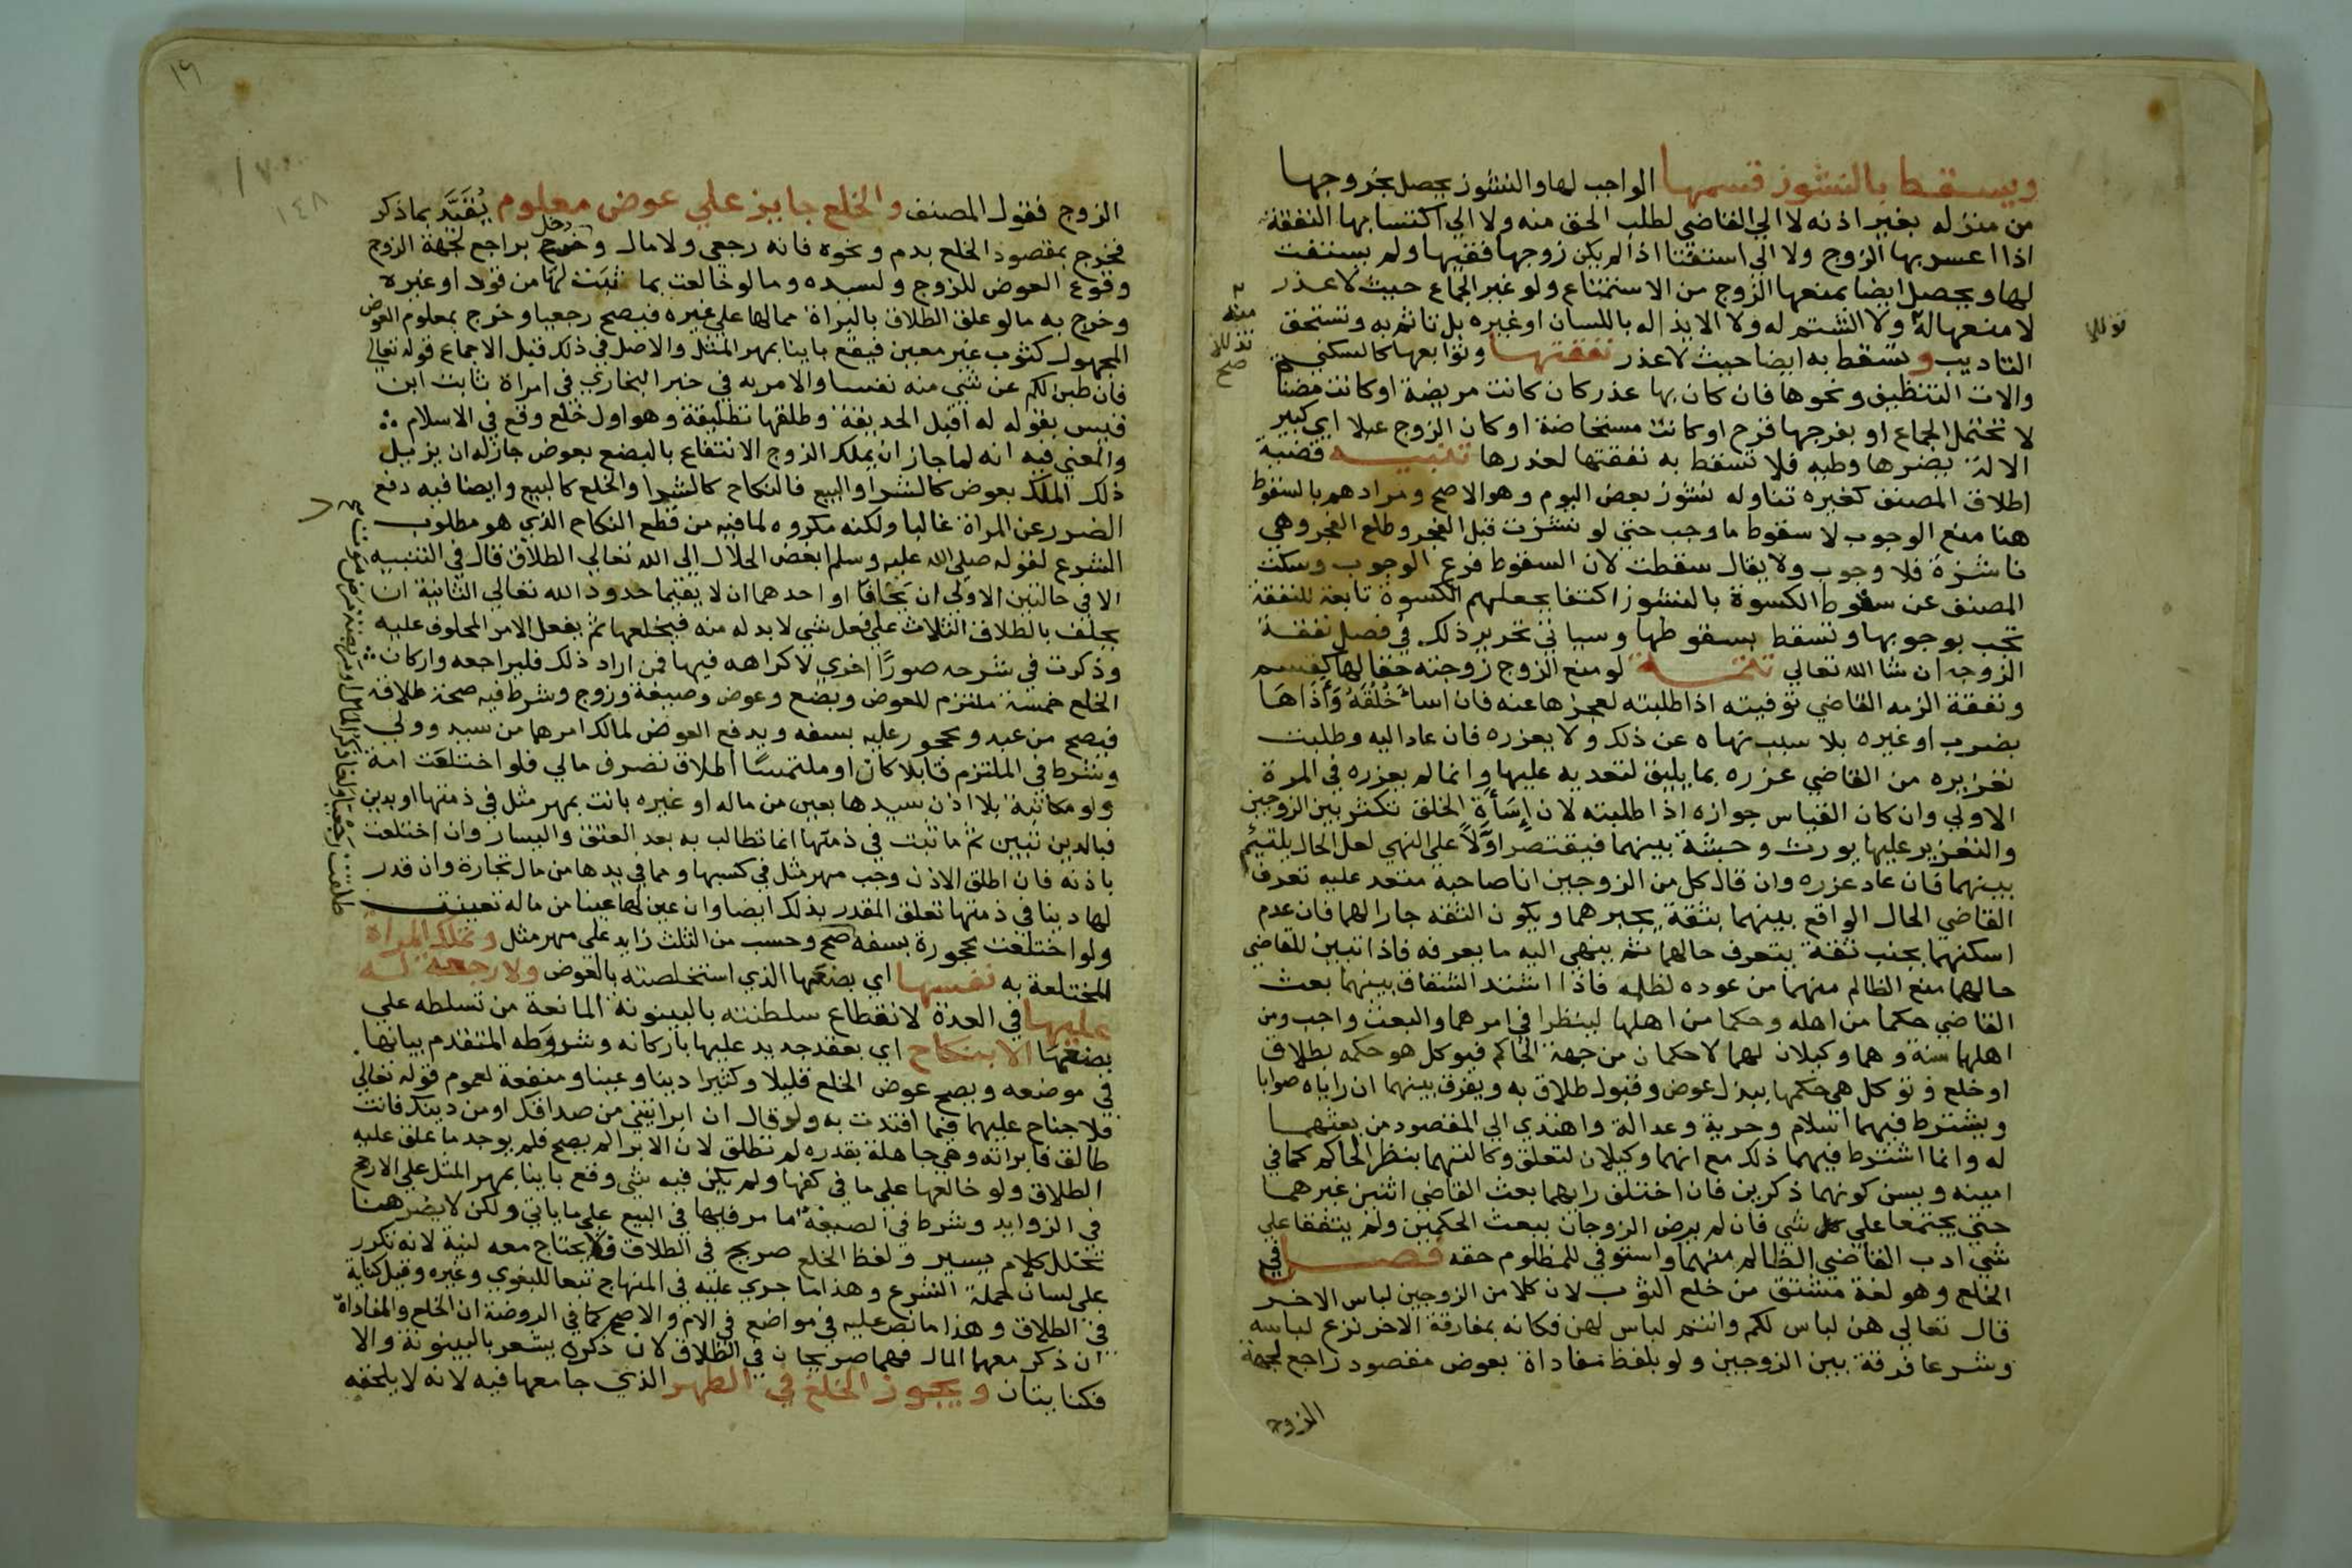 ويسقط بالنشوز قسمها الواجب لها والنشوز يحصل بخروجها
من منزله بغير اذنه لا الي القاضي لطلب الحق منه ولا الي اكتسابها النفقة
اذا اعسر بها الزوج ولا الي استفتا اذا لم يكن زوجها فقيها ولم يستفت
لها ويحصل ايضا بمنعها الزوج من الاستمتاع ولو غير الجماع حيث لا عذر
لا منعها له ولا الشتم له ولا الايذا له باللسان او غيره بل تاثم به وتستحق
التاديب وتسقط به ايضا حيث لا عذر نفقتها وتوابعها كالسكني
والات التنظيف ونحوها فان كان بها عذر كان كانت مريضة او كانت مضناة
لا تحتمل الجماع او بفرجها قرح او كانت مستحاضة او كان الزوج عبلا اي كبير
الالة يضرها وطيه فلا تسقط به نفقتها لعذرها تنبيه قضية
اطلاق المصنف كغيره تناوله نشوز بعض اليوم وهو الاصح ومرادهم بالسقوط
هنا منع الوجوب لا سقوط ما وجب حتي لو نشزت قبل الفجر وطلع الفجر وهي
ناشزة فلا وجوب ولا يقال سقطت لان السقوط فرع الوجوب وسكت
المصنف عن سقوط الكسوة بالنشوز اكتفا بجعلهم الكسوة تابعة للنفقة
تجب بوجوبها وتسقط بسقوطها وسياتي تحرير ذلك في فصل نفقة
الزوجة ان شا الله تعالي تتمة لو منع الزوج زوجته حقا لها كقسم
ونفقة الزمه القاضي توفيته اذا طلبته لعجزها عنه فان اسا خلقه واذاها
بضرب او غيره بلا سبب نهاه عن ذلك ولا يعزره فان عاد اليه وطلبت
تعزيره من القاضي عزره بما يليق لتعديه عليها وانما لم يعزره في المرة
الاولي وان كان القياس جوازه اذا طلبته لان اساة الخلق تكثر بين الزوجين
والتعزير عليها يورث وحشة بينهما فيقتصر اولا علي النهي لعل الحال يلتيم
بينهما فان عاد عزره وان قال كل من الزوجين ان صاحبه متعد عليه تعرف
القاضي الحال الواقع بينهما بثقة يخبرهما ويكون الثقة جارا لهما فان عدم
اسكنهما بجنب ثقة يتعرف حالهما ثم ينهي اليه ما يعرفه فاذا تبين للقاضي
حالهما منع الظالم منهما من عوده لظلمه فاذا اشتد الشقاق بينهما بعث
القاضي حكما من اهله وحكما من اهلها لينظرا في امرهما والبعث واجب ومن
اهلهما سنة وهما وكيلان لهما لا حكمان من جهة الحاكم فيوكل هو حكمه بطلاق
او خلع وتوكل هي حكمها ببذل عوض وقبول طلاق به ويفرق بينهما ان راياه صوابا
ويشترط فيهما اسلام وحرية وعدالة واهتدي الي المقصود من بعثهما
له وانما اشترط فيهما ذلك مع انهما وكيلان لتعلق وكالتهما بنظر الحاكم كما في
امينه ويسن كونهما ذكرين فان اختلف رايهما بعث القاضي اثنين غيرهما
حتي يجتمعا علي كل شي فان لم يرض الزوجان ببعث الحكمين ولم يتفقا علي
شي ادب القاضي الظالم منهما واستوفي للمظلوم حقه فصل في
الخلع وهو لغة مشتق من خلع الثوب لان كلا من الزوجين لباس الاخر
قال تعالي هن لباس لكم وانتم لباس لهن فكانه بمفارقة الاخر نزع لباسه
وشرعا فرقة بين الزوجين ولو بلفظ مفاداة بعوض مقصود راجع لجهة
الزوج
صح
١٤٨
الزوج فقول المصنف والخلع جايز علي عوض معلوم يقيد بما ذكر
فخرج بمقصود الخلع بدم ونحوه فانه رجعي ولا مال ودخل براجع لجهة الزوج
وقوع العوض للزوج ولسيده وما لو خالعت بما ثبت لها من قود او غيره
وخرج به ما لو علق الطلاق بالبراة مما لها علي غيره فيصح رجعيا وخرج بمعلوم العوض
المجهول كثوب غير معين فيقع باينا بمهر المثل والاصل في ذلك قبل الاجماع قوله تعالي
فان طبن لكم عن شي منه نفسا والامر به في خبر البخاري في امراة ثابت ابن
قيس بقوله له اقبل الحديقة وطلقها تطليقة وهو اول خلع وقع في الاسلام
والمعني فيه انه لما جاز ان يملك الزوج الانتفاع بالبضع بعوض جاز له ان يزيل
ذلك الملك بعوض كالشرا والبيع فالنكاح كالشرا والخلع كالبيع وايضا فيه دفع
الضرر عن المراة غالبا ولكنه مكروه لما فيه من قطع النكاح الذي هو مطلوب
الشرع لقوله صلي الله عليه وسلم ابغض الحلال الي الله تعالي الطلاق قال في التنبيه
الا في حالتين الاولي ان يخافا او احدهما ان لا يقيما حدود الله تعالي الثانية ان
يحلف بالطلاق الثلاث علي فعل شي لا بد له منه فيخلعها ثم يفعل الامر المحلوف عليه
وذكرت في شرحه صورا اخري لا كراهه فيها فمن اراد ذلك فليراجعه واركان
الخلع خمسة ملتزم للعوض وبضع وعوض وصيغة وزوج وشرط فيه صحة طلاقه
فيصح من عبد ومحجور عليه بسفه ويدفع العوض لمالك امرهما من سيد وولي
وشرط في الملتزم قابلا كان او ملتمسا اطلاق تصرف مالي فلو اختلعت امة
ولو مكاتبة بلا اذن سيدها بعين من ماله او غيره بانت بمهر مثل في ذمتها او بدين
فبالدين تبين ثم ما ثبت في ذمتها انما تطالب به بعد العتق واليسار وان اختلعت
باذنه فان اطلق الاذن وجب مهر مثل في كسبها ومما في يدها من مال تجارة وان قدر
لها دينا في ذمتها تعلق المقدر بذلك ايضا وان عين لها عينا من ماله تعينت
ولو اختلعت محجورة بسفه صح وحسب من الثلث زايد علي مهر مثل وتملك المراة
المختلعة به نفسها اي بضعها الذي استخلصته بالعوض ولا رجعة له
عليها في العدة لانقطاع سلطنته بالبينونة المانعة من تسلطه علي
بضعها الا بنكاح اي بعقد جديد عليها باركانه وشروطه المتقدم بيانها
في موضعه ويصح عوض الخلع قليلا وكثيرا دينا وعينا ومنفعة لعموم قوله تعالي
فلا جناح عليهما فيما افتدت به ولو قال ان ابراتيني من صداقك او من دينك فانت
طالق فابراته وهي جاهلة بقدره لم تطلق لان الابرا لم يصح فلم يوجد ما علق عليه
الطلاق ولو خالعها علي ما في كفها ولم يكن فيه شي وقع باينا بمهر المثل علي الارجح
في الزوايد وشرط في الصيغة ما مر فيها في البيع علي ما ياتي ولكن لا يضر هنا
تخلل كلام يسير ولفظ الخلع صريح في الطلاق فلا يحتاج معه لنية لانه تكرر
علي لسان حملة الشرع وهذا ما جري عليه في المنهاج تبعا للبغوي وغيره وقيل كناية
في الطلاق وهذا ما نص عليه في مواضع في الام والاصح كما في الروضة ان الخلع والمفاداة
ان ذكر معهما المال فهما صريحان في الطلاق لان ذكره يشعر بالبينونة والا
فكنايتان ويجوز الخلع في الطهر الذي جامعها فيه لانه لا يلحقه